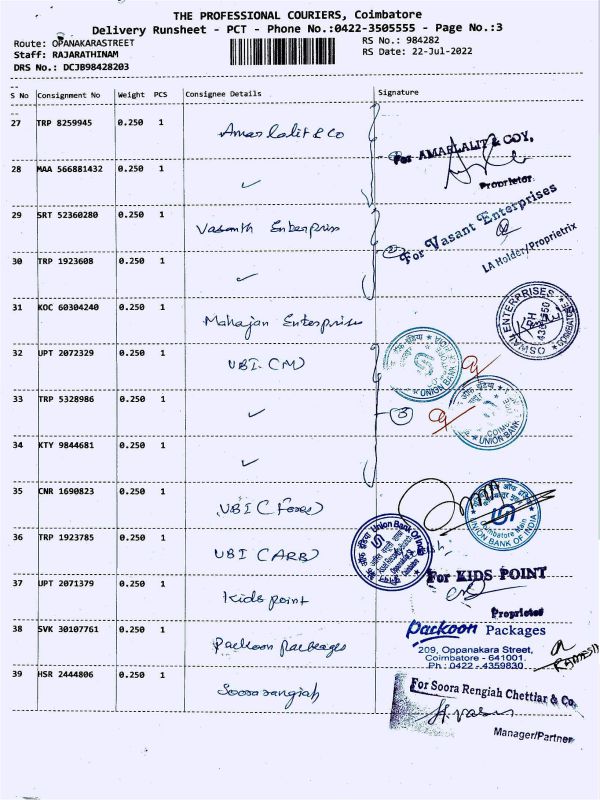 THE PROFESSIONAL COURIERS, Coimbatore
Delivery Runsheet - PCT - Phone No.:0422-3505555 - Page No.:3
Route: OPANAKARASTREET
Staff: RAJARATHINAM
DRS No.: DCJB98428203
RS No.: 984282
RS Date: 22-Jul-2022
S No Consignment No Weight PCS Consignee Details Signature
27 TRP 8259945 0.250 1 Amar Lalit & Co
For AMARLALIT & COY,
Proprietor
28 MAA 566881432 0.250 1 ✓
29 SRT 52360280 0.250 1 Vasanth Enterpris
② For Vasant Enterprises
LA Holder/Proprietrix
30 TRP 1923608 0.250 1 ✓
31 KOC 60304240 0.250 1 Mahajan Enterprises
OSWAL ENTERPRISES
COIMBATORE
32 UPT 2072329 0.250 1 UBI (M)
UNION BANK
33 TRP 5328986 0.250 1 ✓
③
UNION BANK
34 KTY 9844681 0.250 1 ✓
35 CNR 1690823 0.250 1 UBI (Forex)
Coimbatore Main
UNION BANK OF INDIA
36 TRP 1923785 0.250 1 UBI (ARB)
Union Bank Of India
37 UPT 2071379 0.250 1 Kids point
For KIDS POINT
Proprietor
38 SVK 30107761 0.250 1 Packoon packages
Packoon Packages
209, Oppanakara Street,
Coimbatore - 641001.
Ph : 0422 - 4359830
RAMESH
39 HSR 2444806 0.250 1 Soora rangiah
For Soora Rengiah Chettiar & Co.
Manager/Partner